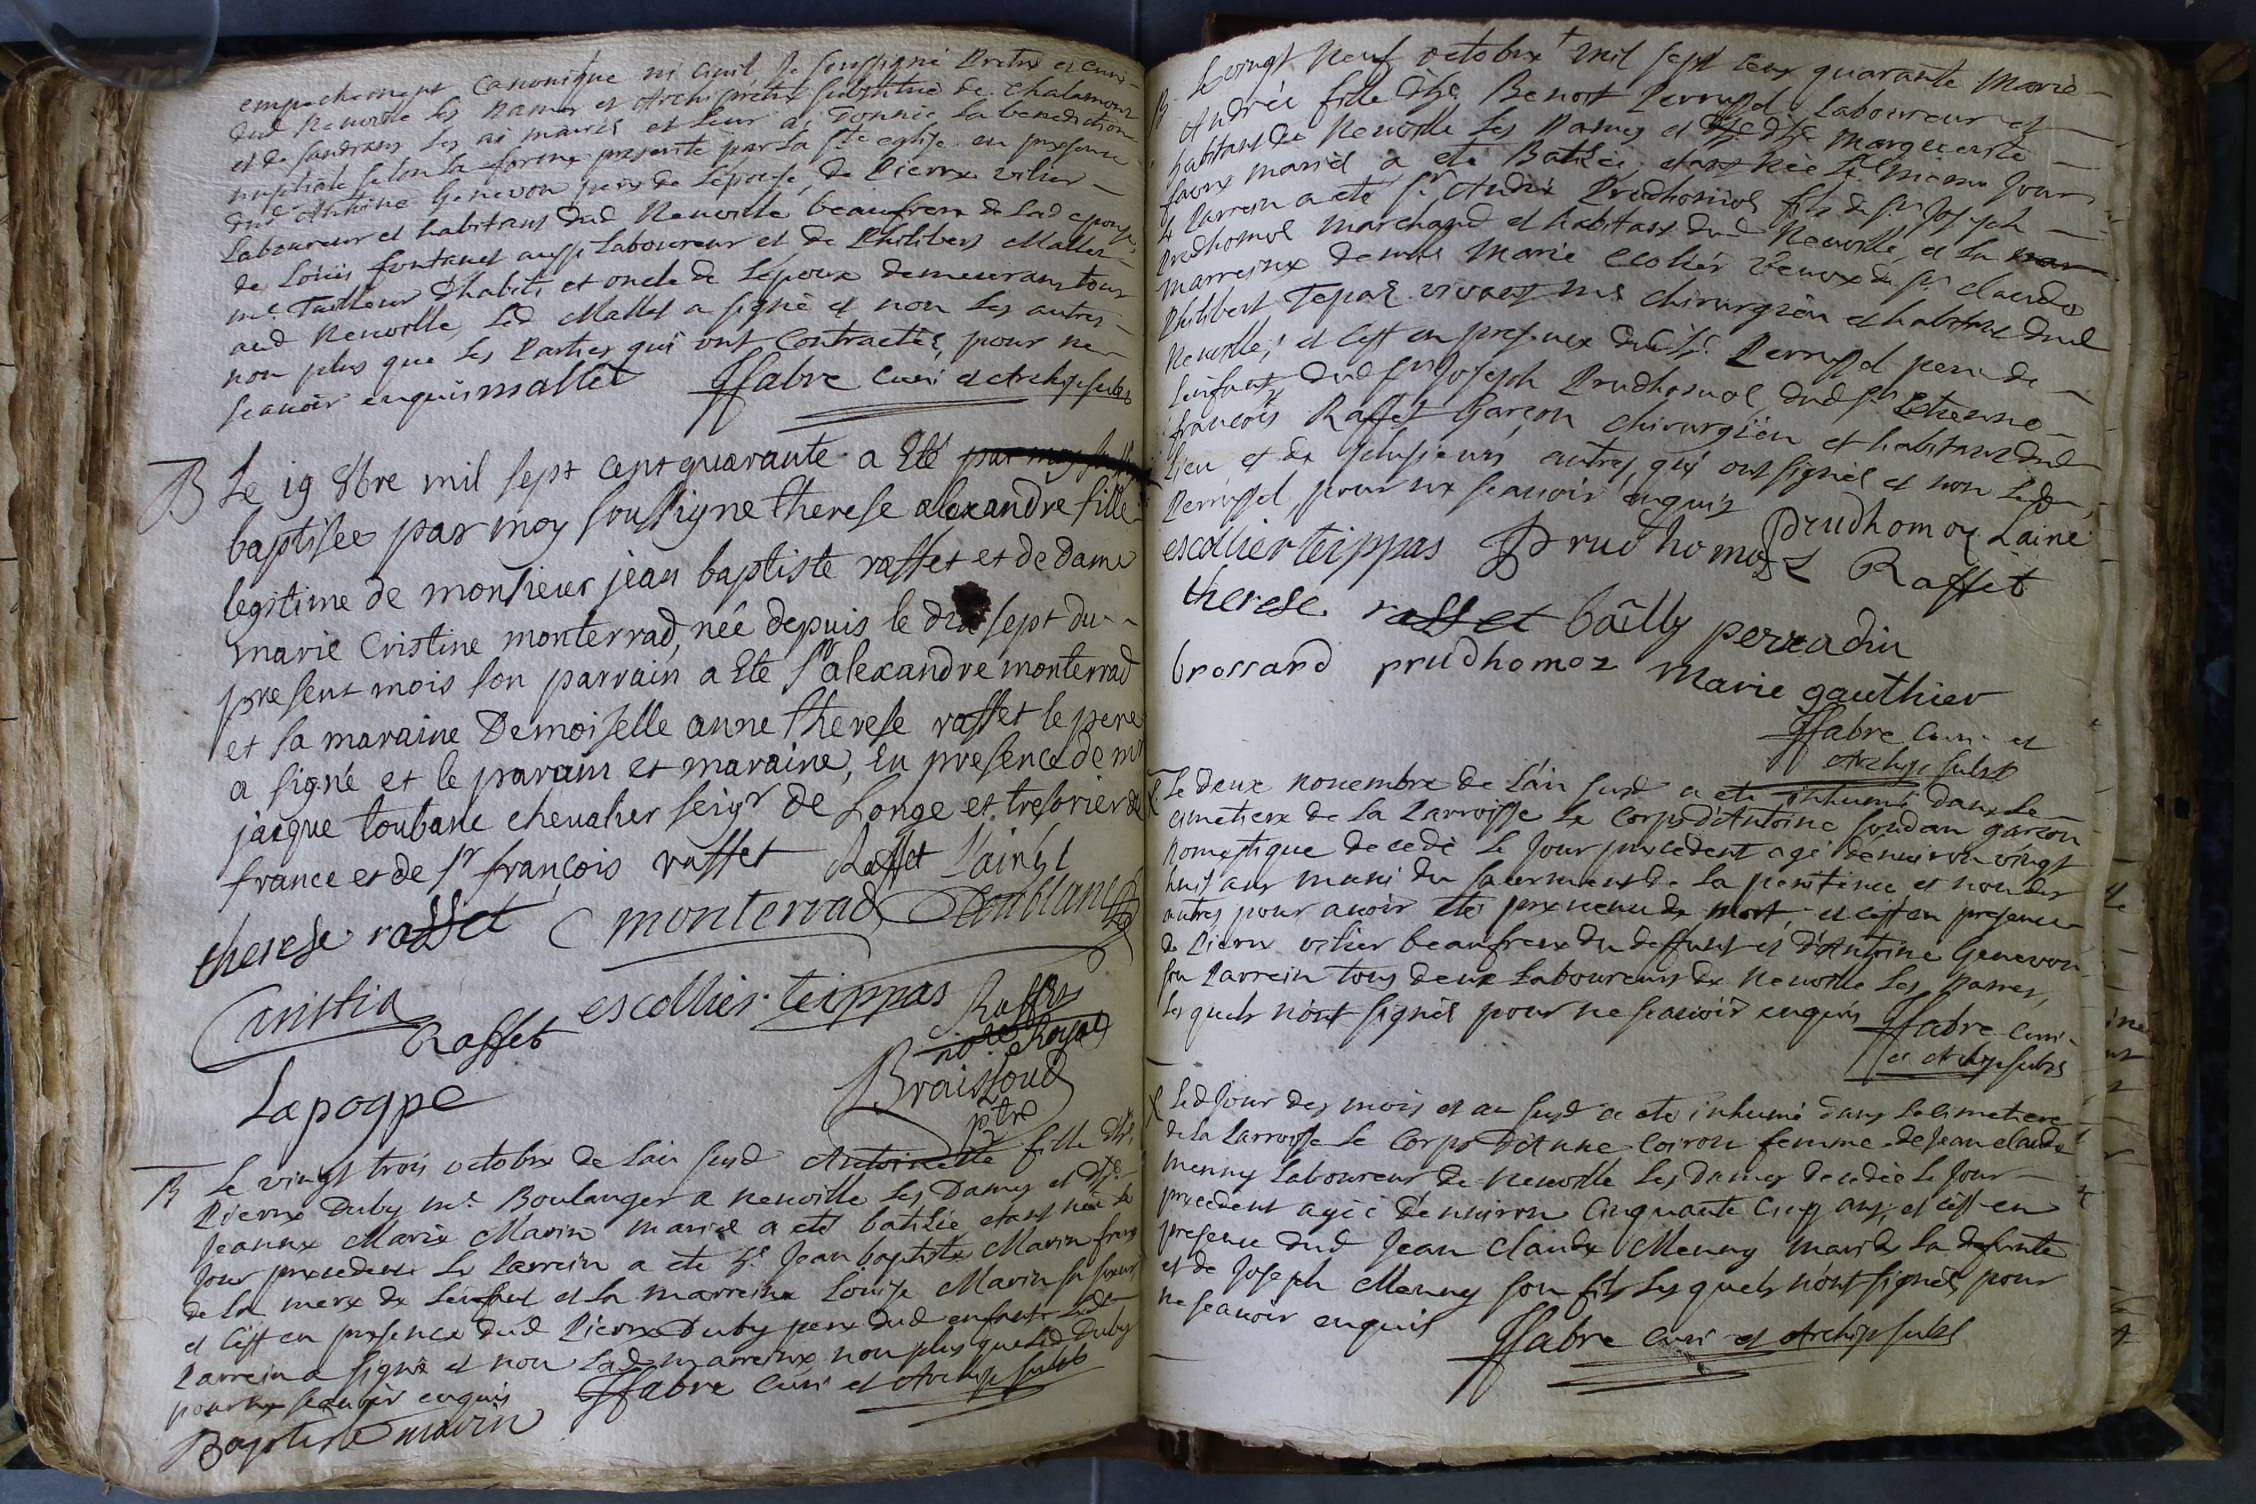 empechement canonique ni civil, Je soussigné Pretre et curé
dud Neuville les Dames et Archipretre substitué de Chalamont
et de Sandrans les ai mariés et leur ai donnée la benediction
nuptiale selon la forme presente par la Ste eglise en presence
dud Antoine Genevon pere de Lépouse, de Pierre vilier
Laboureur et habitant dud Neuville beaufrere de Lad epouse,
de Loüis fontanel aussi Laboureur et de Philibert Mallet
me Tailleur d'habits et oncle de Lépoux demeurans tous
aud Neuville, Led Mallet a signé et non les autres
non plus que les Parties qui ont Contractés, pour ne
scavoir enquis mallet ffabre curé et Archip subs
B Le 19 8bre mil sept cent quarante a Eté
baptisée par moy soussigne therese alexandre fille
legitime de monsieur jean baptiste raffet et de dame
marie Cristine monterrad, née depuis le dix sept du
present mois son parrain a Ete sr alexandre monterrad
et la maraine Demoiselle anne therese raffet le pere
a signé et le parain et maraine, En presence de mr
jacque loubane chevalier seigr de Longe et tresorier de
france et de sr françois raffet Raffet L'ainé
therese raffet monterrad
escollier teippas Raffet
Raffet nore Royal
Lapoype Braissoud
ptre
B Le vingt trois octobre de L'an susd Antoinette fille d'he
Pierre Duby me Boulanger a Neuville les Dames et d'he
Jeanne Marie Marin mariés a eté batisée etant née le
Jour precedent Le Parrein a ete Sr Jean baptiste Marin frere
de La mere de L'enfant et La marreine Louise Marin sa soeur
et c'est en presence dud Pierre Duby pere dud enfant Led
Parrein a signé et non Lad marreine non plus que Led Duby
pour ne scavoir enquis ffabre curé et Archip subs
Baptiste marin
B Le vingt neuf octobre mil sept cent quarante Marie
Andrée fille d'he Benoit Perrussel Laboureur et
habitant de Neuville les Dames et d'he Marguerite
favre mariés a eté Batisée etant née Le meme Jour
Le Parrein a eté Sr André Prudhomol fils de Sr Joseph
Prudhomol marchand et habitant dud Neuville, et La
marreine demlle Marie Ecolier veuve de Sr Claude
Philibert Tepas vivant me chirurgien et habitant dud
Neuville, et c'est en presence dud Perrussel pere de
L'enfant dud Sr Joseph Prudhomol, dud Sr Etienne
francois Raffet Garçon chirurgien et habitant dud
Lieu et de plusieurs autres qui ont signés et non Led
Perrussel, pour ne scavoir enquis
escollier teippas Prudhomoz prudhomoz Lainé
Raffet
therese raffet bailly perradin
brossard prudhomoz Marie gauthier
ffabre curé et
Archip subst
Le deux novembre de L'an susd a eté inhumé dans Le
cimetiere de La Parroisse Le Corps d'Antoine soudan garcon
Domestique decedé Le Jour precedent agé denviron vingt
huit ans muni du sacrement de La penitence et non des
autres pour avoir eté prevenu de mort et c'est en presence
de Pierre vilier beaufrere du deffunt et d'Antoine Genevon
son Parrein tous deux Laboureurs de Neuville les Dames,
Les quels n'ont signés pour ne scavoir enquis ffabre curé
et Archip subs
Led Jour des mois et an susd a eté inhumé dans Le cimetiere
de La Parroisse Le Corps d'Anne Coiron femme de Jean Claude
Menny Laboureur de Neuville les Dames decedée Le Jour
precedent agée d'environ Cinquante Cinq ans, et c'est en
presence dud Jean Claude Menny mari de La defunte
et de Joseph Menny son fils Les quels n'ont signés pour
ne scavoir enquis ffabre curé et Archip subst